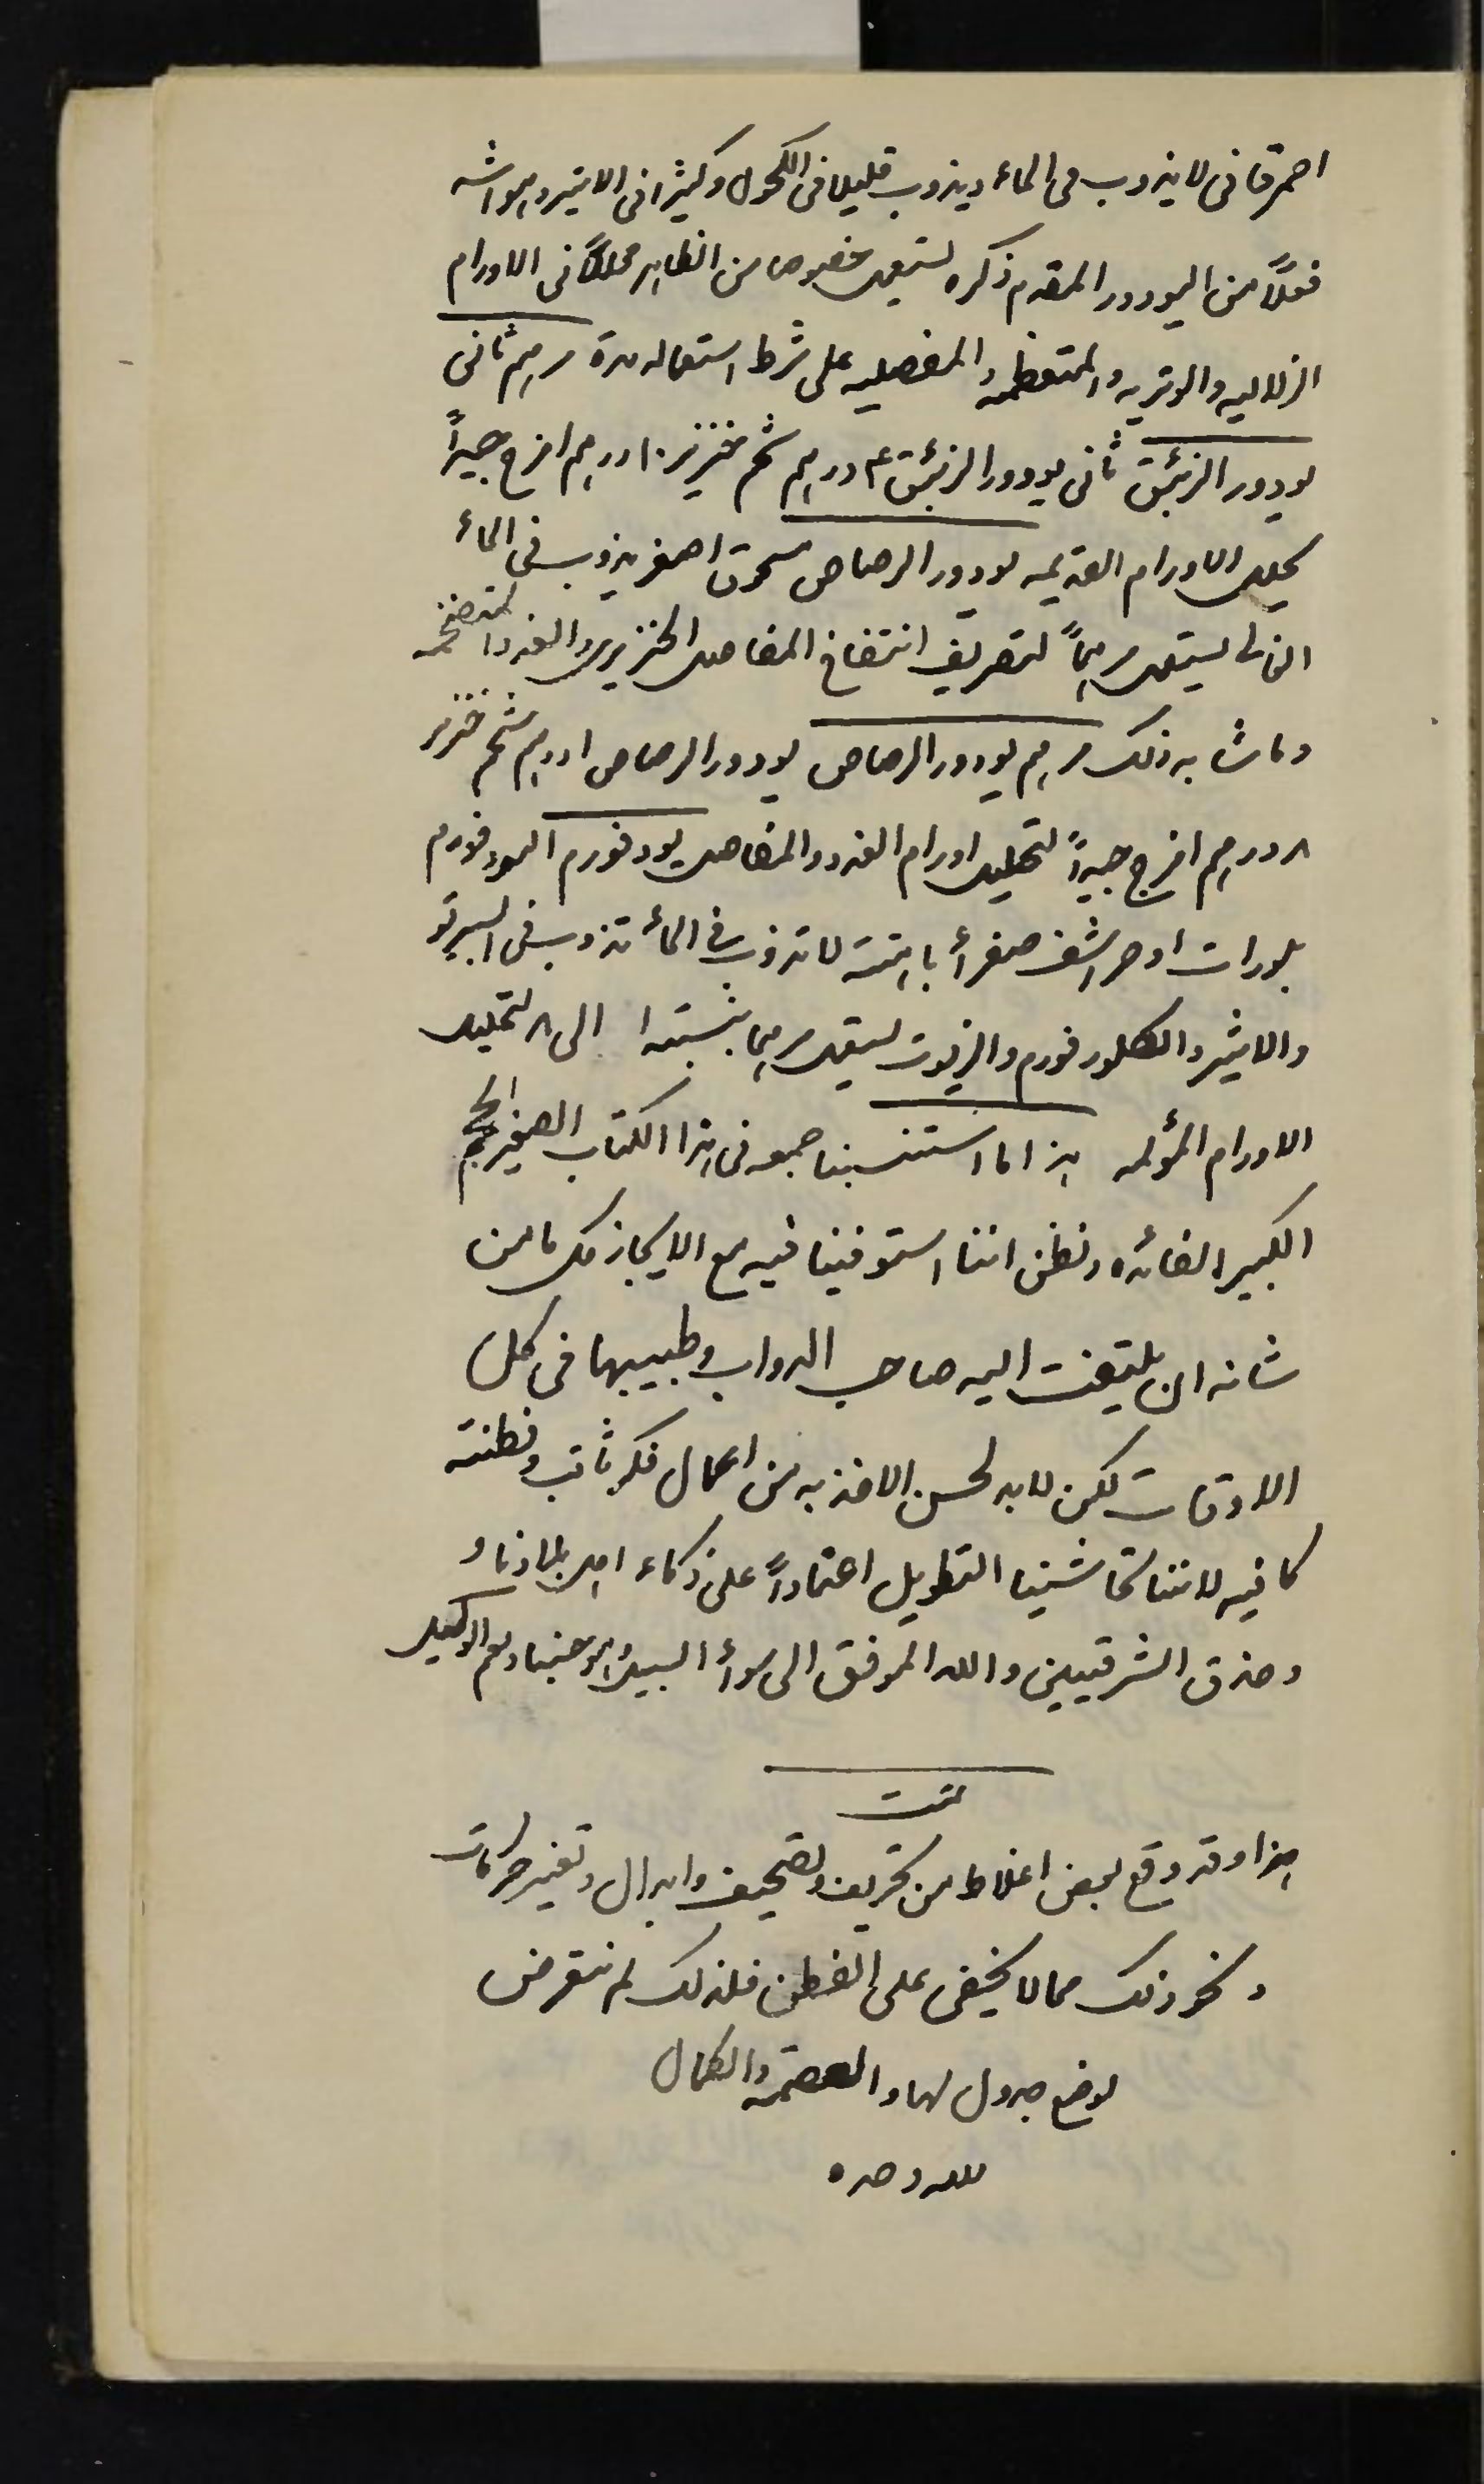 احمر قاني لا يذوب في الماء ويذوب قليلا في الكحول وكثيرا في الاثير وهو اشد
فعلاً من اليودور المقدم ذكره يستعمل خصوصا من الظاهر محللاً في الاورام
الزلاليه والوتريه والمتعظمه والمفصليه على شرط استعماله مدة مرهم ثاني
يودور الزئبق ثاني يودور الزئبق ٤ درهم شحم خنزير ١٠ درهم امزج جيداً
لحليل الاورام القديمه يودور الرصاص مسحوق اصفر يذوب في الماء
الغالي يستعمل مرهماً لتصريف انتفاخ المفاصل الخنزيري والغدد المتضخمه
وما شابه ذلك مرهم يودور الرصاص يودور الرصاص ١ درهم شحم خنزير
٨ درهم امزج جيداً لتحليل اورام الغدد والمفاصل يودفورم اليودفورم
بلورات او حراشف صفرأ باهتة لا تذوب في المأ تذوب في السبرتو
والاثير والكلورفورم والزيوت يستعمل مرهما بنسبة ١ الى ٨ لتحليل
الاورام المؤلمه هذا ما استنسبنا جمعه في هذا الكتاب الصغير الحجم
الكبير الفائده ونظن اننا استوفينا فيه مع الايجاز كل ما من
شانه ان يلتفت اليه صاحب الدواب وطبيبها في كل
الاوقات لكن لا بد لحسن الاخذ به من اعمال فكر ثاقب وفطنة
كافيه لاننا تحاشينا التطويل اعتماداً على ذكاء اهل بلادنا و
وحذق الشرقيين والله الموفق الى سوأ السبيل وهو حسبنا ونعم الوكيل
تمت
هذا وقد وقع بعض اغلاط من تحريف وتصحيف وابدال وتغير حركات
ونحو ذلك مما لا يخفى على الفطن فلذلك لم نتعرض
لوضع جدول لها والعصمة والكمال
لله وحده